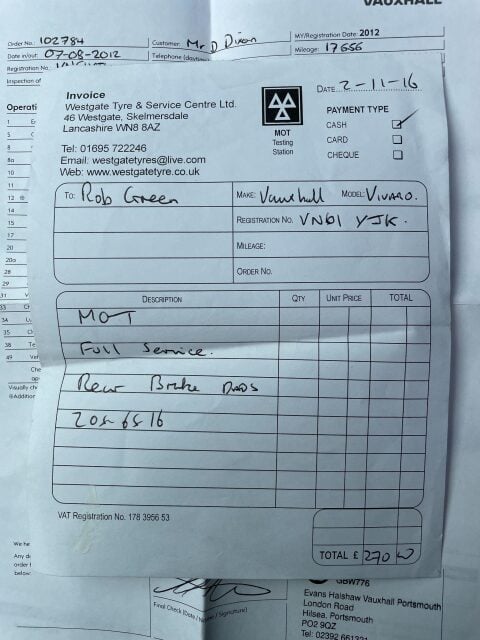 VAUXHALL
Order No.: 102784
Customer: Mr D Dixon
MY/Registration Date: 2012
Date in/out: 07-08-2012
Telephone
Mileage: 17656
Registration No.
Inspection of
Operati
Invoice
Westgate Tyre & Service Centre Ltd.
46 Westgate, Skelmersdale
Lancashire WN8 8AZ
Tel: 01695 722246
Email: westgatetyres@live.com
Web: www.westgatetyre.co.uk
MOT
Testing
Station
DATE 2-11-16
PAYMENT TYPE
CASH ✓
CARD
CHEQUE
TO: Rob Green
MAKE: Vauxhall MODEL: VIVARO.
REGISTRATION NO. VN61 YJK.
MILEAGE:
ORDER NO.
DESCRIPTION QTY UNIT PRICE TOTAL
MOT
Full Service.
Rear Brake PADS
205 65 16
VAT Registration No. 178 3956 53
TOTAL £ 270
1
5
8
8a
10
11
12
14
15
17
20
20a
28
29
31
33
34
35
38
49
Visually che
We he
Any d
order t
below
Final Check (Date / Name / Signature)
GBW776
Evans Halshaw Vauxhall Portsmouth
London Road
Hilsea, Portsmouth
PO2 9QZ
Tel: 02392 661321